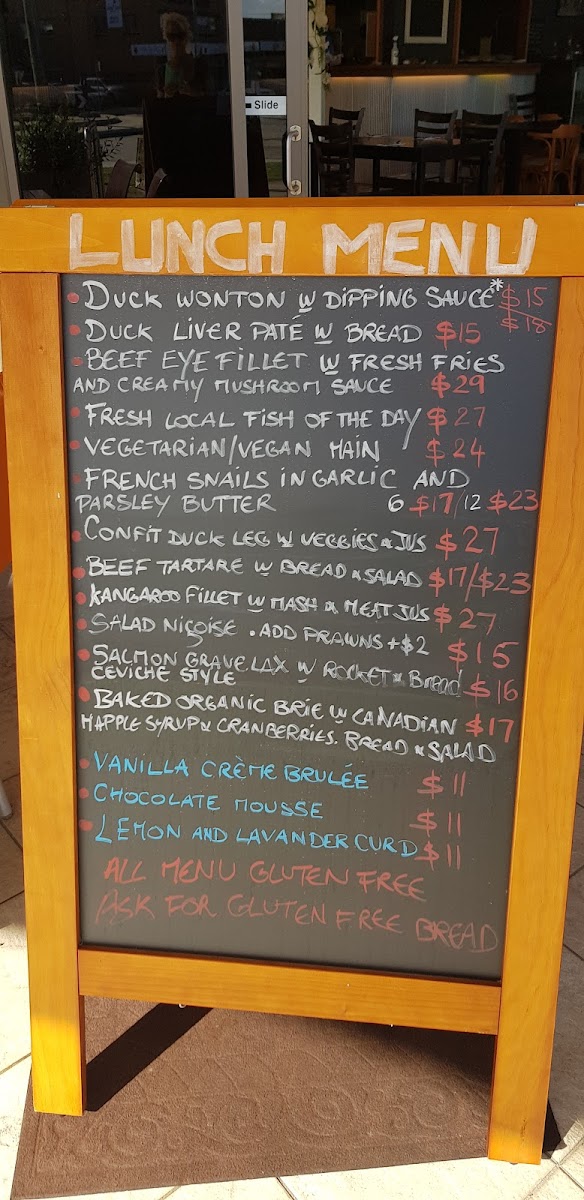 Slide
LUNCH MENU
• DUCK WONTON W DIPPING SAUCE* $15
$18
• DUCK LIVER PATÉ W BREAD $15
• BEEF EYE FILLET W FRESH FRIES
AND CREAMY MUSHROOM SAUCE $29
• FRESH LOCAL FISH OF THE DAY $27
• VEGETARIAN/VEGAN MAIN $24
• FRENCH SNAILS IN GARLIC AND
PARSLEY BUTTER 6 $17/12 $23
• CONFIT DUCK LEG W VEGGIES & JUS $27
• BEEF TARTARE W BREAD & SALAD $17/$23
• KANGAROO FILLET W MASH & MEAT JUS $27
• SALAD NIÇOISE . ADD PRAWNS +$2 $15
• SALMON GRAVELAX W ROCKET & BREAD $16
CEVICHE STYLE
• BAKED ORGANIC BRIE W CANADIAN $17
MAPPLE SYRUP & CRANBERRIES. BREAD & SALAD
• VANILLA CRÈME BRULÉE $11
• CHOCOLATE MOUSSE $11
• LEMON AND LAVANDER CURD $11
ALL MENU GLUTEN FREE
ASK FOR GLUTEN FREE BREAD